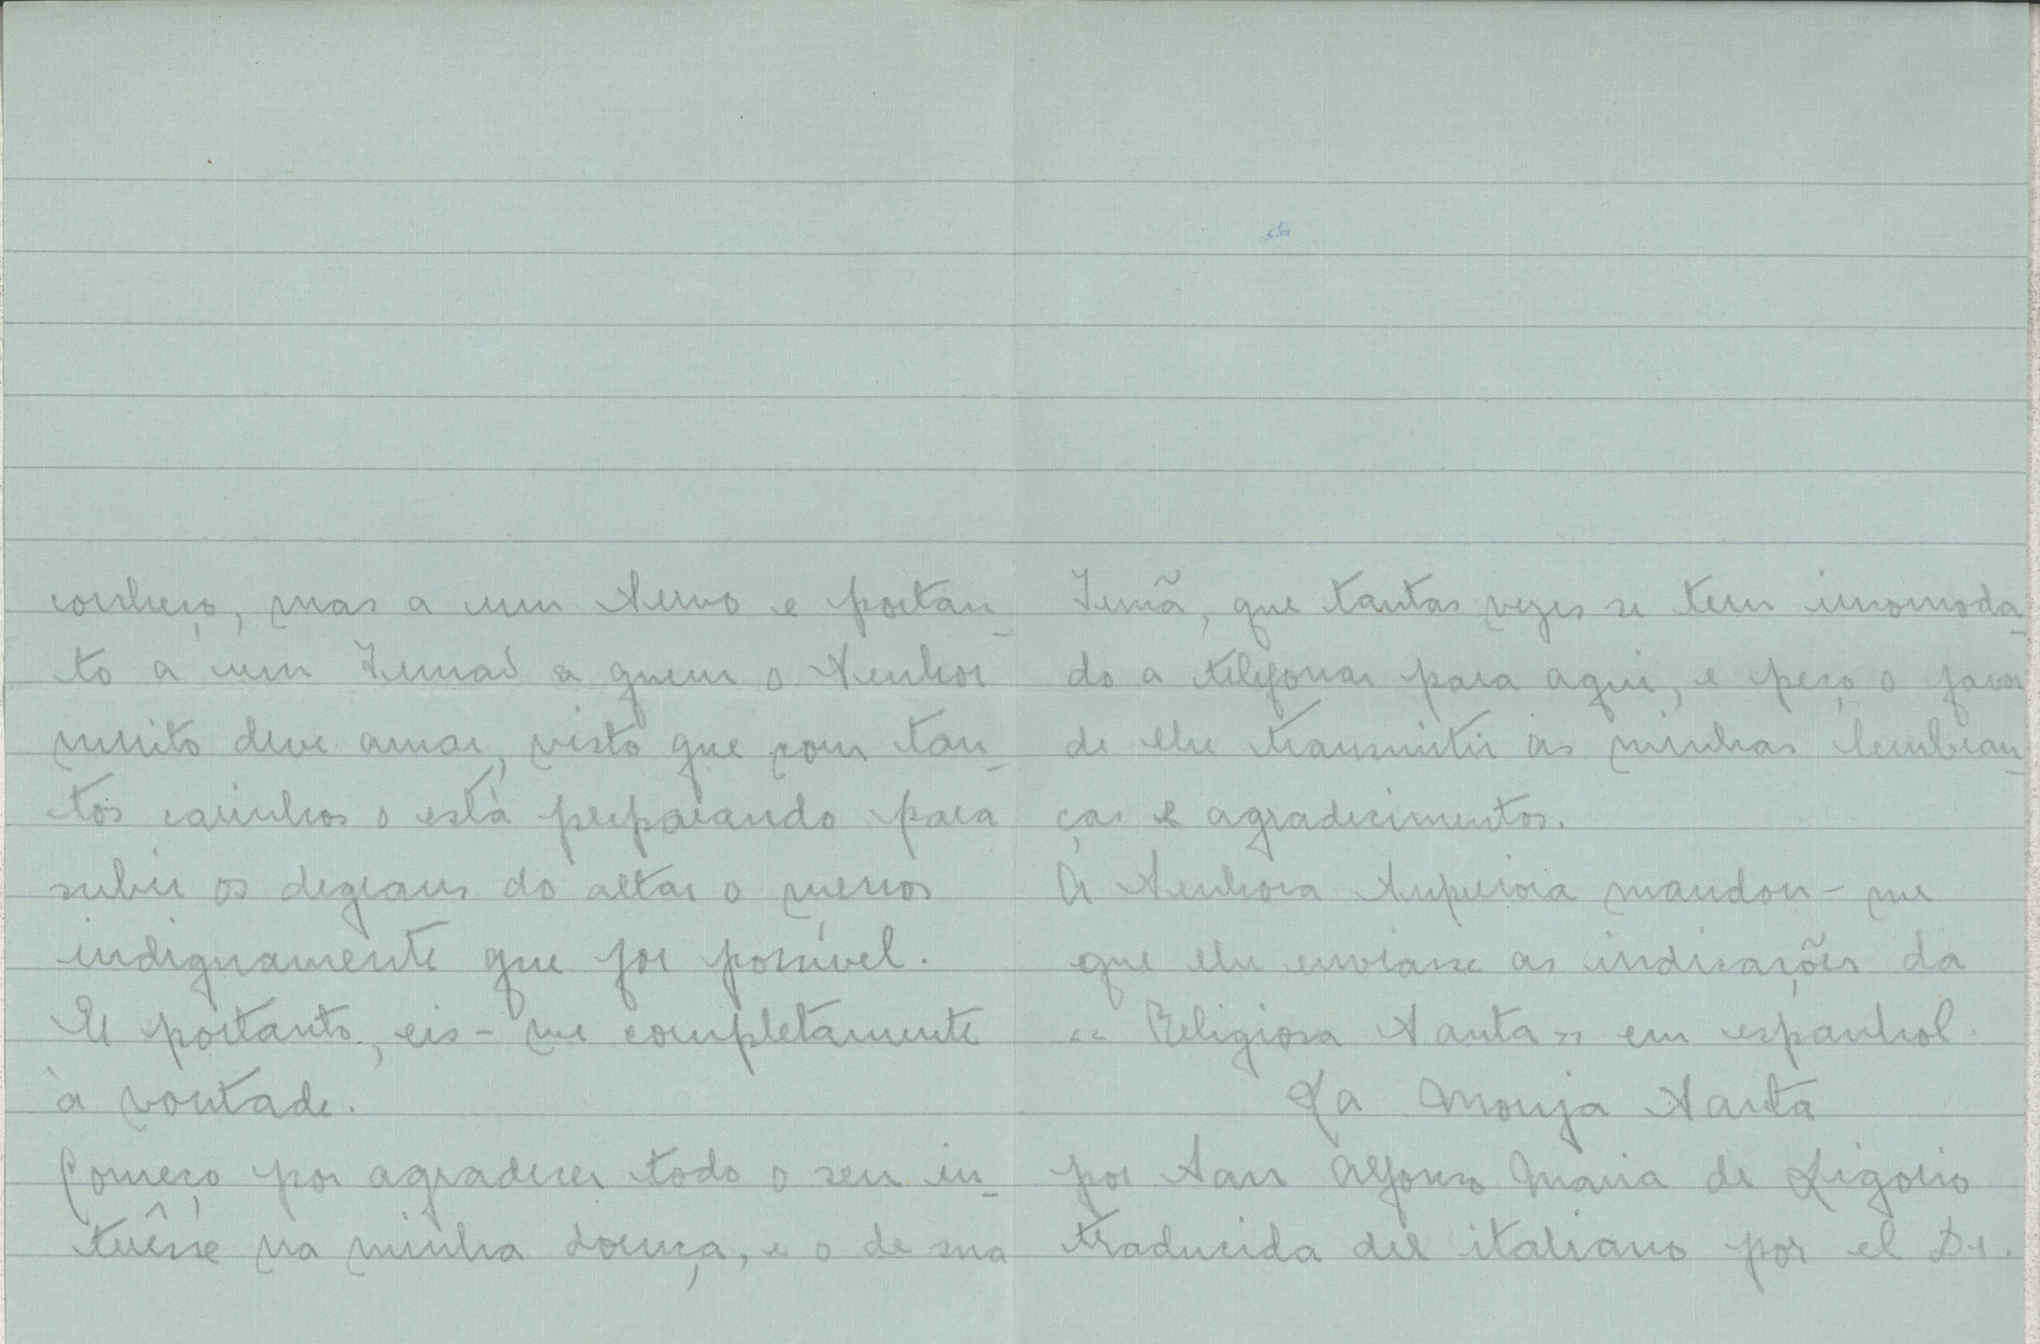 conheço, mas a um Servo e portan-
to a um Irmão a quem o Senhor
muito deve amar, visto que com tan-
tos carinhos o está preparando para
subir os degraus do altar o menos
indignamente que for possível.
E portanto, eis-me completamente
à vontade.
Começo por agradecer todo o seu in-
terêsse na minha doença, e o de sua
Irmã, que tantas vezes se tem incomoda-
do a telefonar para aqui, e peço o favor
de lhe transmitir as minhas lembran-
ças e agradecimentos.
A Senhora Superiora mandou-me
que lhe enviasse as indicações da
"Religiosa Santa" em espanhol.
La Monja Santa
por San Alfonso Maria de Ligorio
traducida del italiano por el Dr.